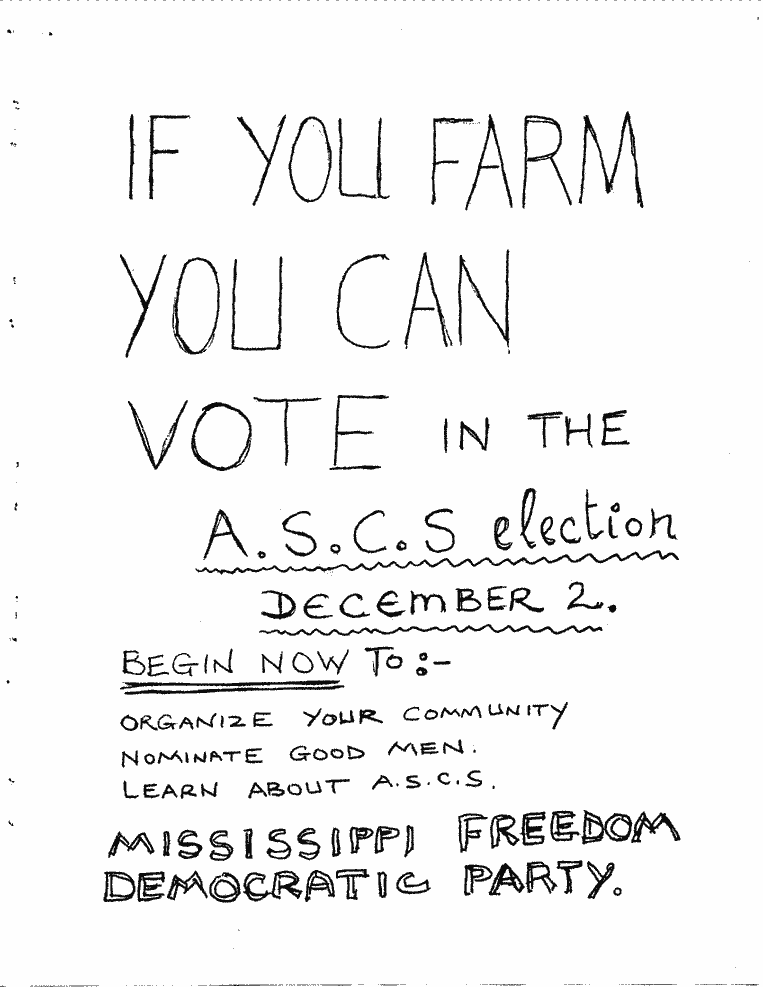 IF YOU FARM
YOU CAN
VOTE IN THE
A.S.C.S election
DECEMBER 2.
BEGIN NOW TO:-
ORGANIZE YOUR COMMUNITY
NOMINATE GOOD MEN.
LEARN ABOUT A.S.C.S.
MISSISSIPPI FREEDOM
DEMOCRATIC PARTY.